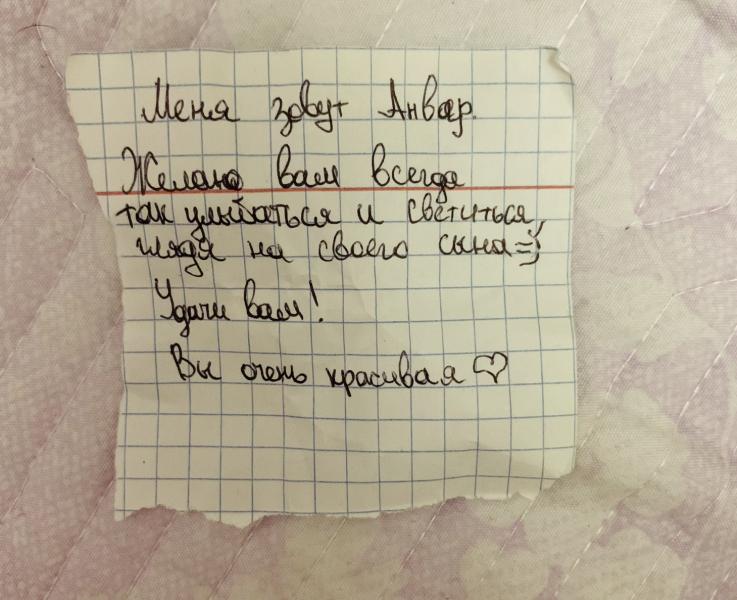 Меня зовут Анвар.
Желаю вам всегда
так улыбаться и светиться,
глядя на своего сына=)
Удачи вам!
Вы очень красивая ♡